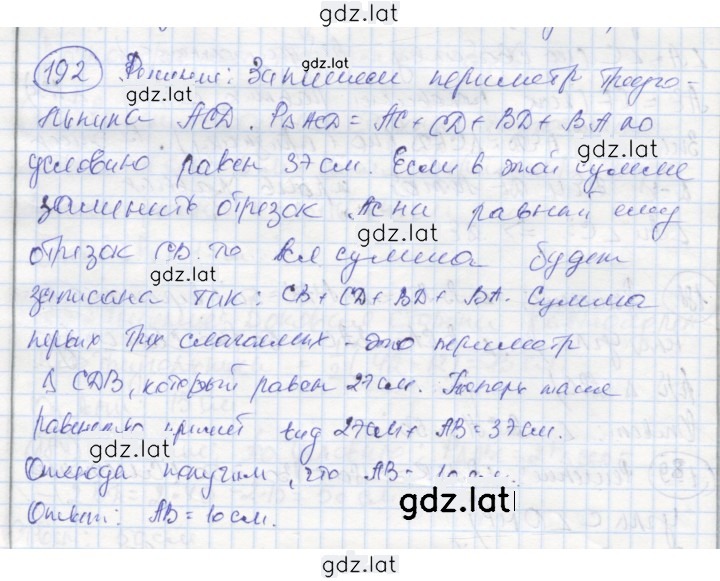 gdz.lat
192 Решение: Запишем периметр треуго-
gdz.lat
льника ACD. P∆ACD = AC + CD + BD + BA по
gdz.lat
условию равен 37 см. Если в этой сумме
заменить отрезок AC на равный ему
gdz.lat
отрезок CB, то вся сумма будет
gdz.lat
записана так: CB + CD + BD + BA. Сумма
первых трёх слагаемых - это периметр
∆ CDB, который равен 27 см. Теперь наше
равенство примет вид 27 см + AB = 37 см.
gdz.lat
Отсюда получим, что AB = 10
gdz.lat
Ответ: AB = 10 см.
gdz.lat